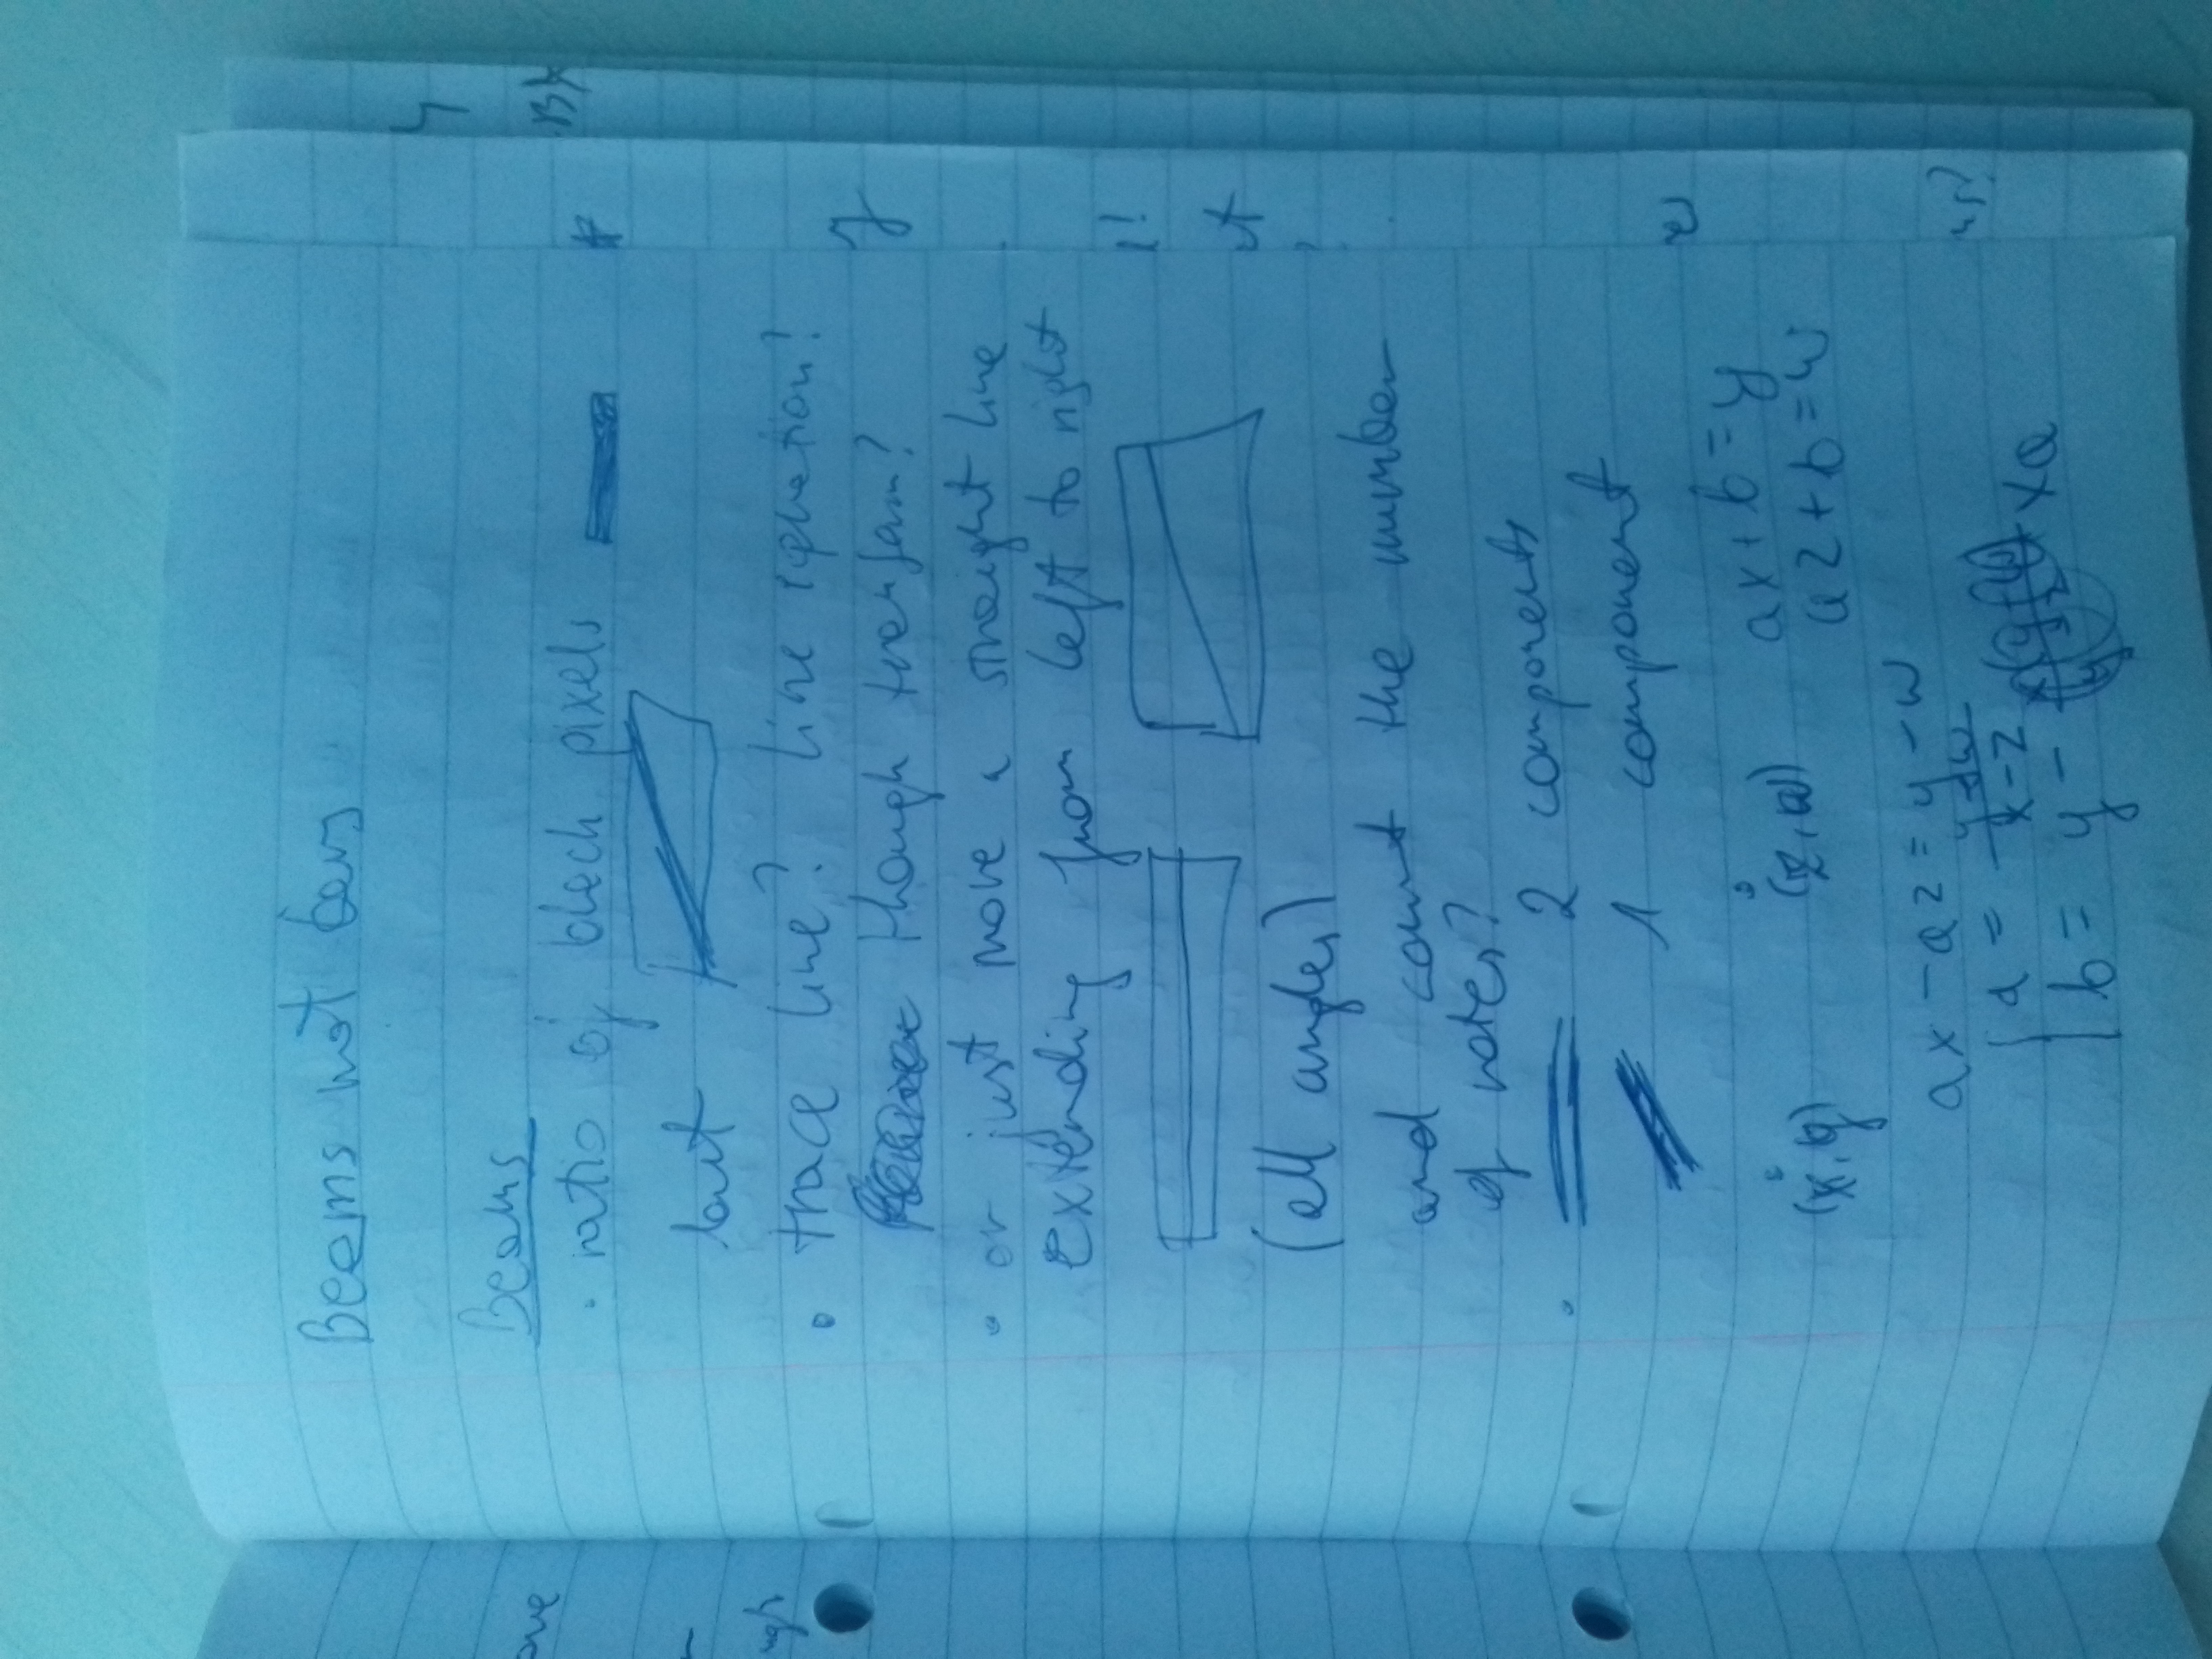 Beams not bars
Beams
· ratio of black pixels
but
· trace line? line equation?
Hough transform?
· or just move a straight line
extending from left to right
(all angles)
and count the number
of notes?
· 2 components
1 component
(x, y) (z, w) ax + b = y
az + b = w
ax - az = y - w
a = y - w / x - z
b = y - xa
ove
ugh